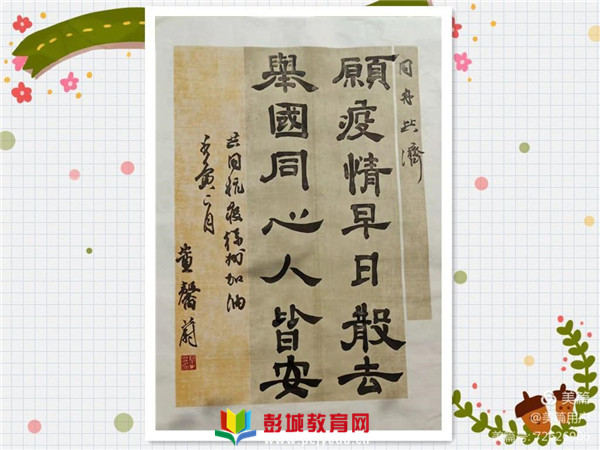 同舟共濟
願疫情早日散去
舉國同心人皆安
共同抗疫徐州加油
壬寅二月
黄馨蔚
彭城教育网
美篇
@美篇用户
美篇号: